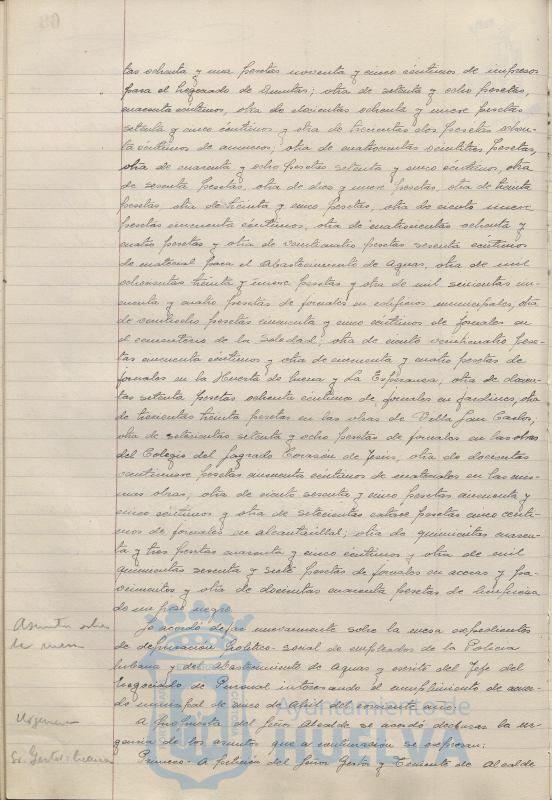 tas ochenta y una pesetas noventa y cinco céntimos de impresos
para el Negociado de Quintas; otra de setenta y ocho pesetas,
cuarenta céntimos, otra de doscientas ochenta y nueve pesetas
setenta y cinco céntimos y otra de trescientas dos pesetas ochen-
ta céntimos de anuncios; otra de cuatrocientas veintitres pesetas,
otra de cuarenta y ocho pesetas setenta y cinco céntimos, otra
de sesenta pesetas, otra de diez y nueve pesetas, otra de treinta
pesetas, otra de treinta y cinco pesetas, otra de ciento nueve
pesetas cincuenta céntimos, otra de cuatrocientas ochenta y
cuatro pesetas y otra de veinticuatro pesetas sesenta céntimos
de material para el Abastecimiento de Aguas, otra de mil
ochocientas treinta y nueve pesetas y otra de mil seiscientas cin-
cuenta y cuatro pesetas de jornales en edificios municipales, otra
de veintiocho pesetas cincuenta y cinco céntimos de jornales en
el cementerio de la Soledad; otra de ciento veinticuatro pese-
tas cincuenta céntimos y otra de cincuenta y cuatro pesetas de
jornales en la Huerta de Mena y La Esperanza, otra de doscien-
tas setenta pesetas ochenta céntimos de jornales en jardines, otra
de trescientas treinta pesetas en las obras de Villa San Carlos;
otra de setecientas setenta y ocho pesetas de jornales en las obras
del Colegio del Sagrado Corazón de Jesús, otra de doscientas
veintinueve pesetas cincuenta céntimos de materiales en las mis-
mas obras; otra de ciento sesenta y cinco pesetas cuarenta y
cinco céntimos y otra de setecientas catorce pesetas cinco cénti-
mos de jornales en alcantarillal; otra de quinientas cuaren-
ta y tres pesetas cuarenta y cinco céntimos y otra de mil
quinientas sesenta y siete pesetas de jornales en aceras y pa-
vimentos y otra de doscientas cuarenta pesetas de limpieza
de un pozo negro.
Asuntos sobre Se acordó dejar nuevamente sobre la mesa expedientes
la mesa de depuración político-social de empleados de la Policía
Urbana y del Abastecimiento de Aguas y escrito del Jefe del
Negociado de Personal interesando el cumplimiento de acuer-
do municipal de cinco de Abril del corriente año.
Urgencia A propuesta del Señor Alcalde se acordó declarar la ur-
gencia de los asuntos que a continuación se expresan:
Sr. Gestor Primero - A petición del Señor Gestor y Teniente de Alcalde
Ayuntamiento de
HUELVA